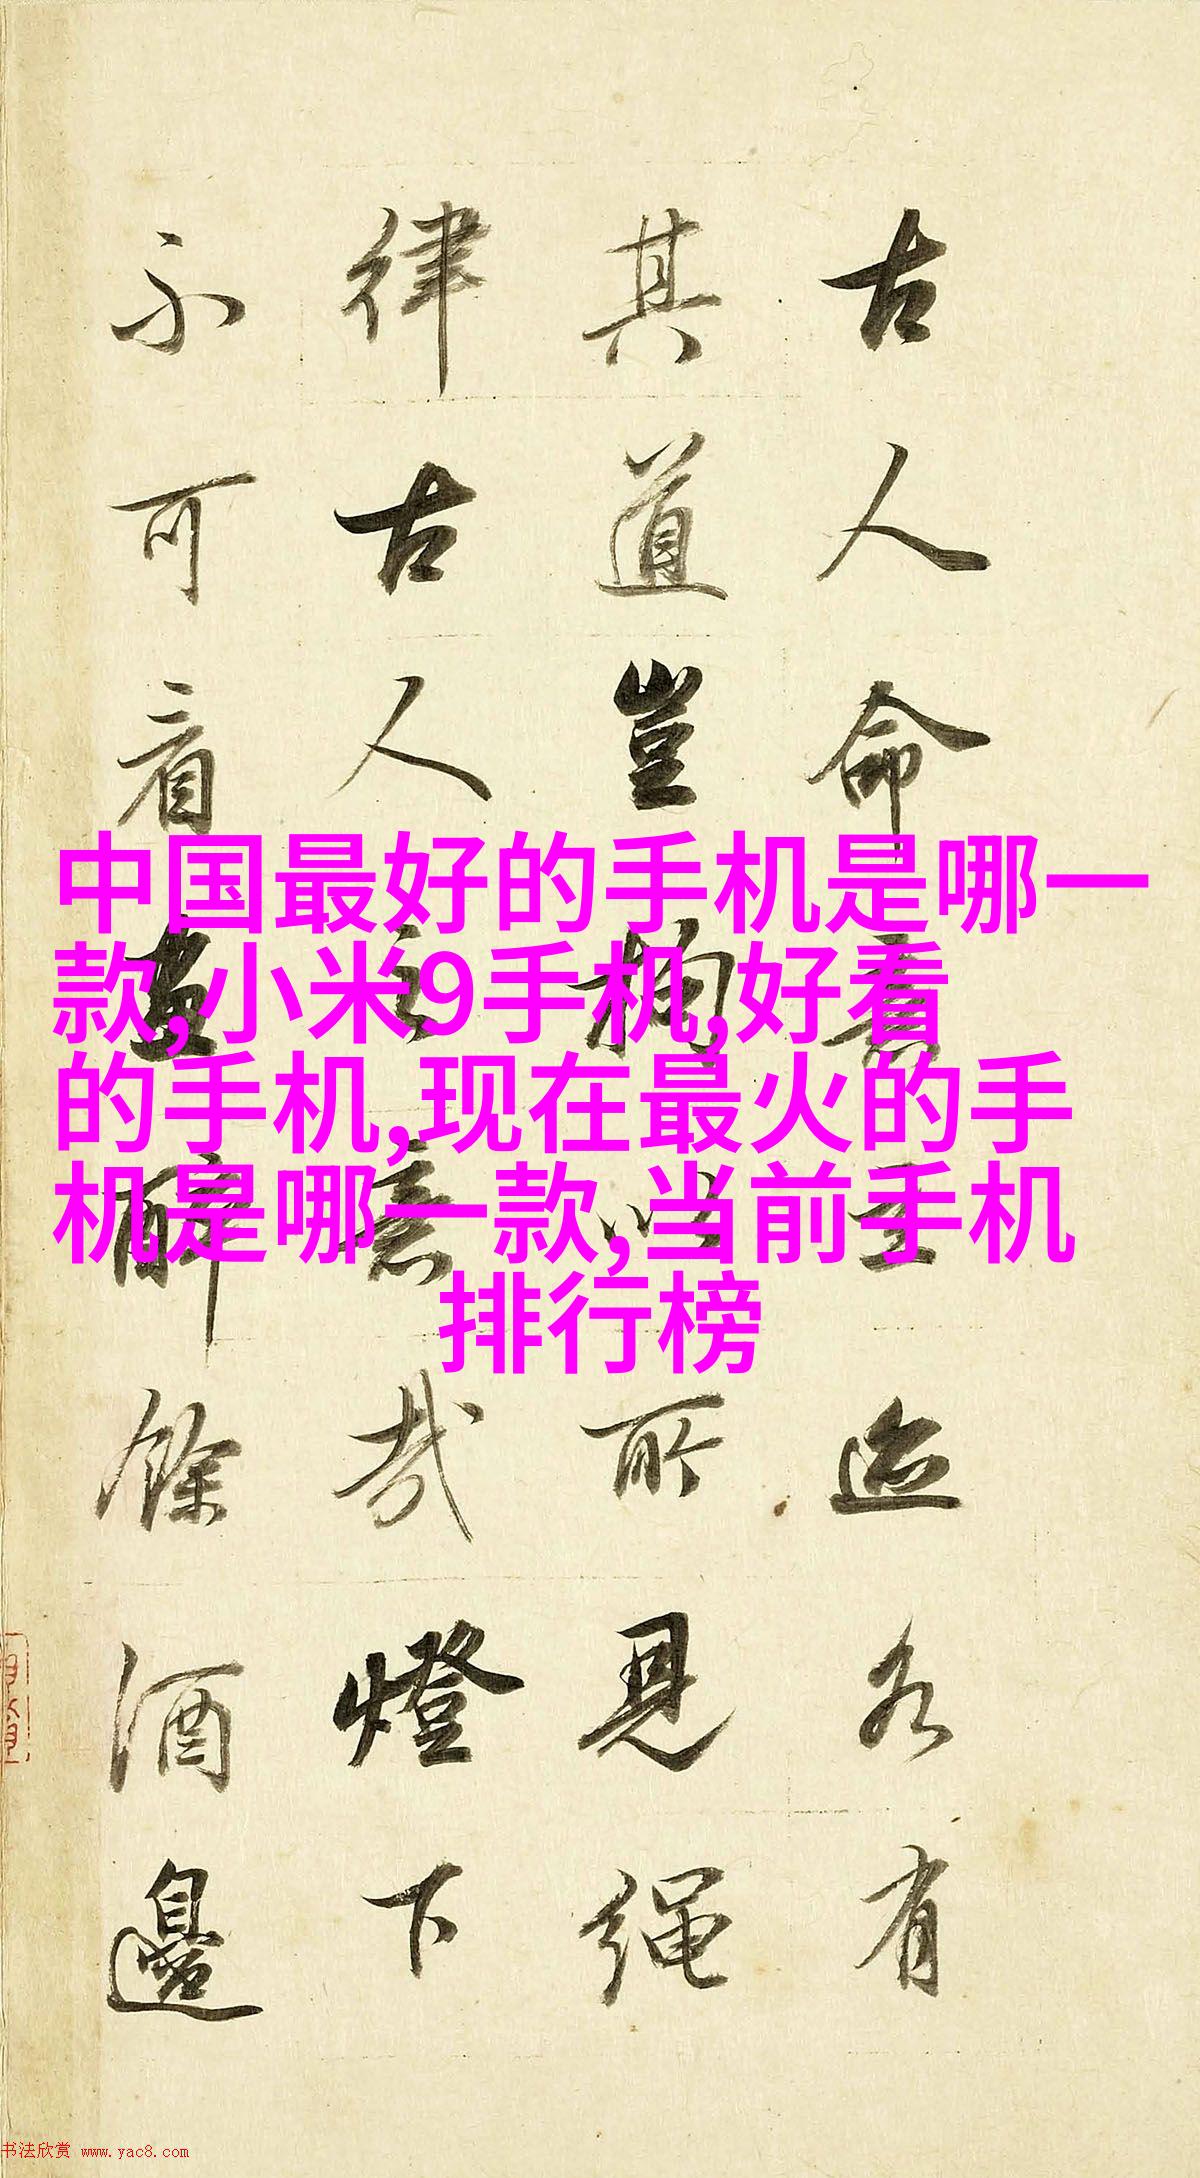 古人命意立迹各有
其道豈拘以所見繩
律古人之意哉燈下
不可看畫醉餘酒邊
中国最好的手机是哪一
款,小米9手机,好看
的手机,现在最火的手
机是哪一款,当前手机
排行榜
书法欣赏 www.yac8.com